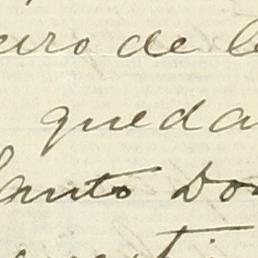 eiro de l
queda
Santo Do